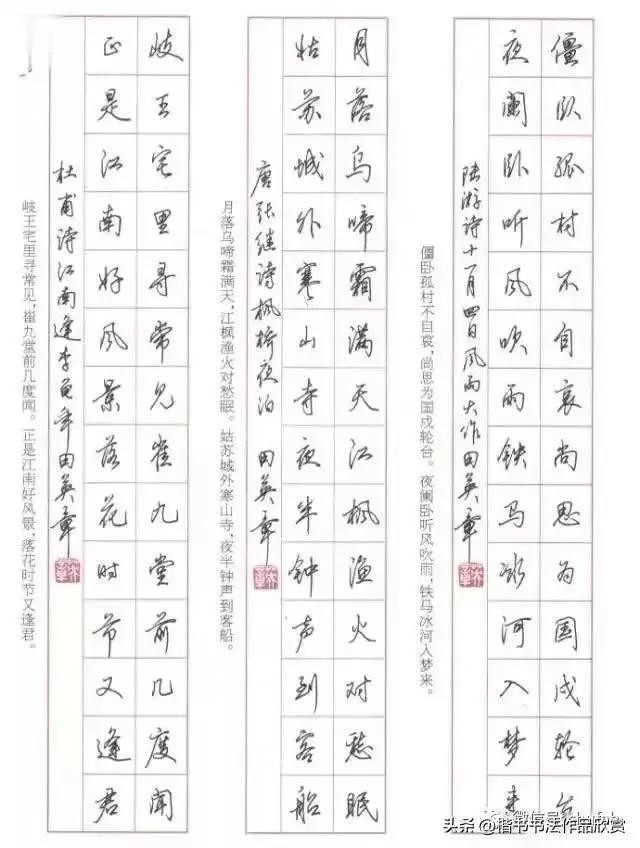 僵卧孤村不自哀尚思为国戍轮台
夜阑卧听风吹雨铁马冰河入梦来
陆游诗十一月四日风雨大作田英章
僵卧孤村不自哀，尚思为国戍轮台。夜阑卧听风吹雨，铁马冰河入梦来。
月落乌啼霜满天江枫渔火对愁眠
姑苏城外寒山寺夜半钟声到客船
唐张继诗枫桥夜泊 田英章
月落乌啼霜满天，江枫渔火对愁眠。姑苏城外寒山寺，夜半钟声到客船。
岐王宅里寻常见崔九堂前几度闻
正是江南好风景落花时节又逢君
杜甫诗江南逢李龟年田英章
岐王宅里寻常见，崔九堂前几度闻。正是江南好风景，落花时节又逢君。
头条@楷书书法作品欣赏